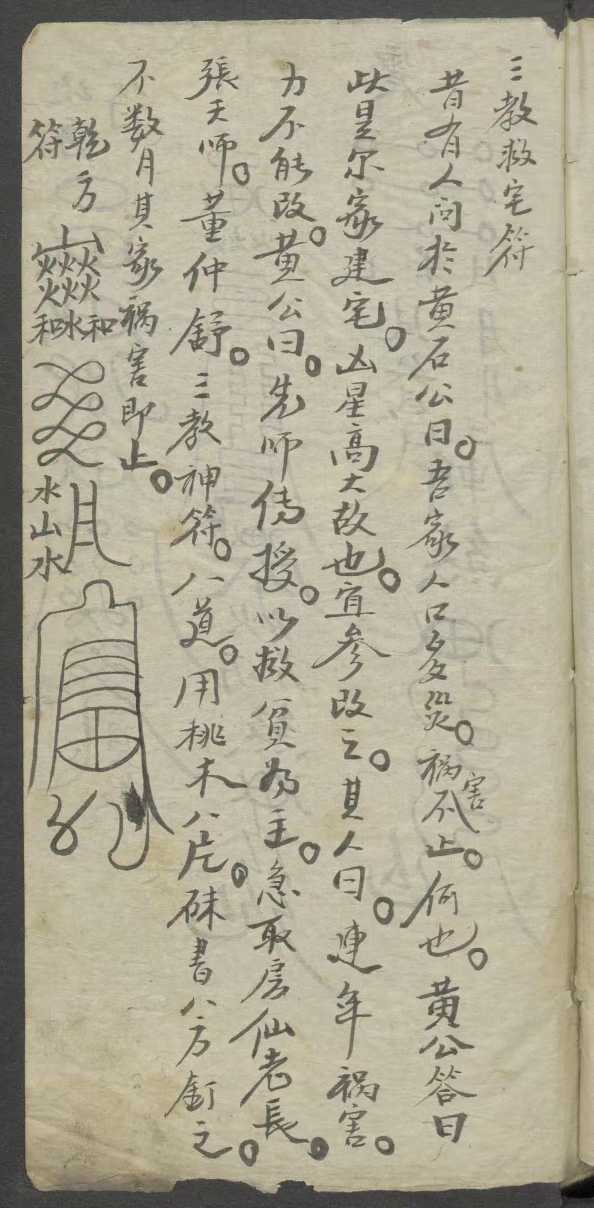 三教救宅符
昔有人问於黄石公曰。吾家人口多災。祸害不止。何也。黄公答曰
此是尔家建宅。凶星高大故也。宜参改之。其人曰。連年祸害。
力不能改。黄公曰。先师傳授。以救貧為主。急取房仙老長。
張天师。董仲舒。三教神符。八道。用桃木八片。硃書八方釘之。
不数月其家祸害即止。
乾方
符
火火火
火火火
和水和
水山水